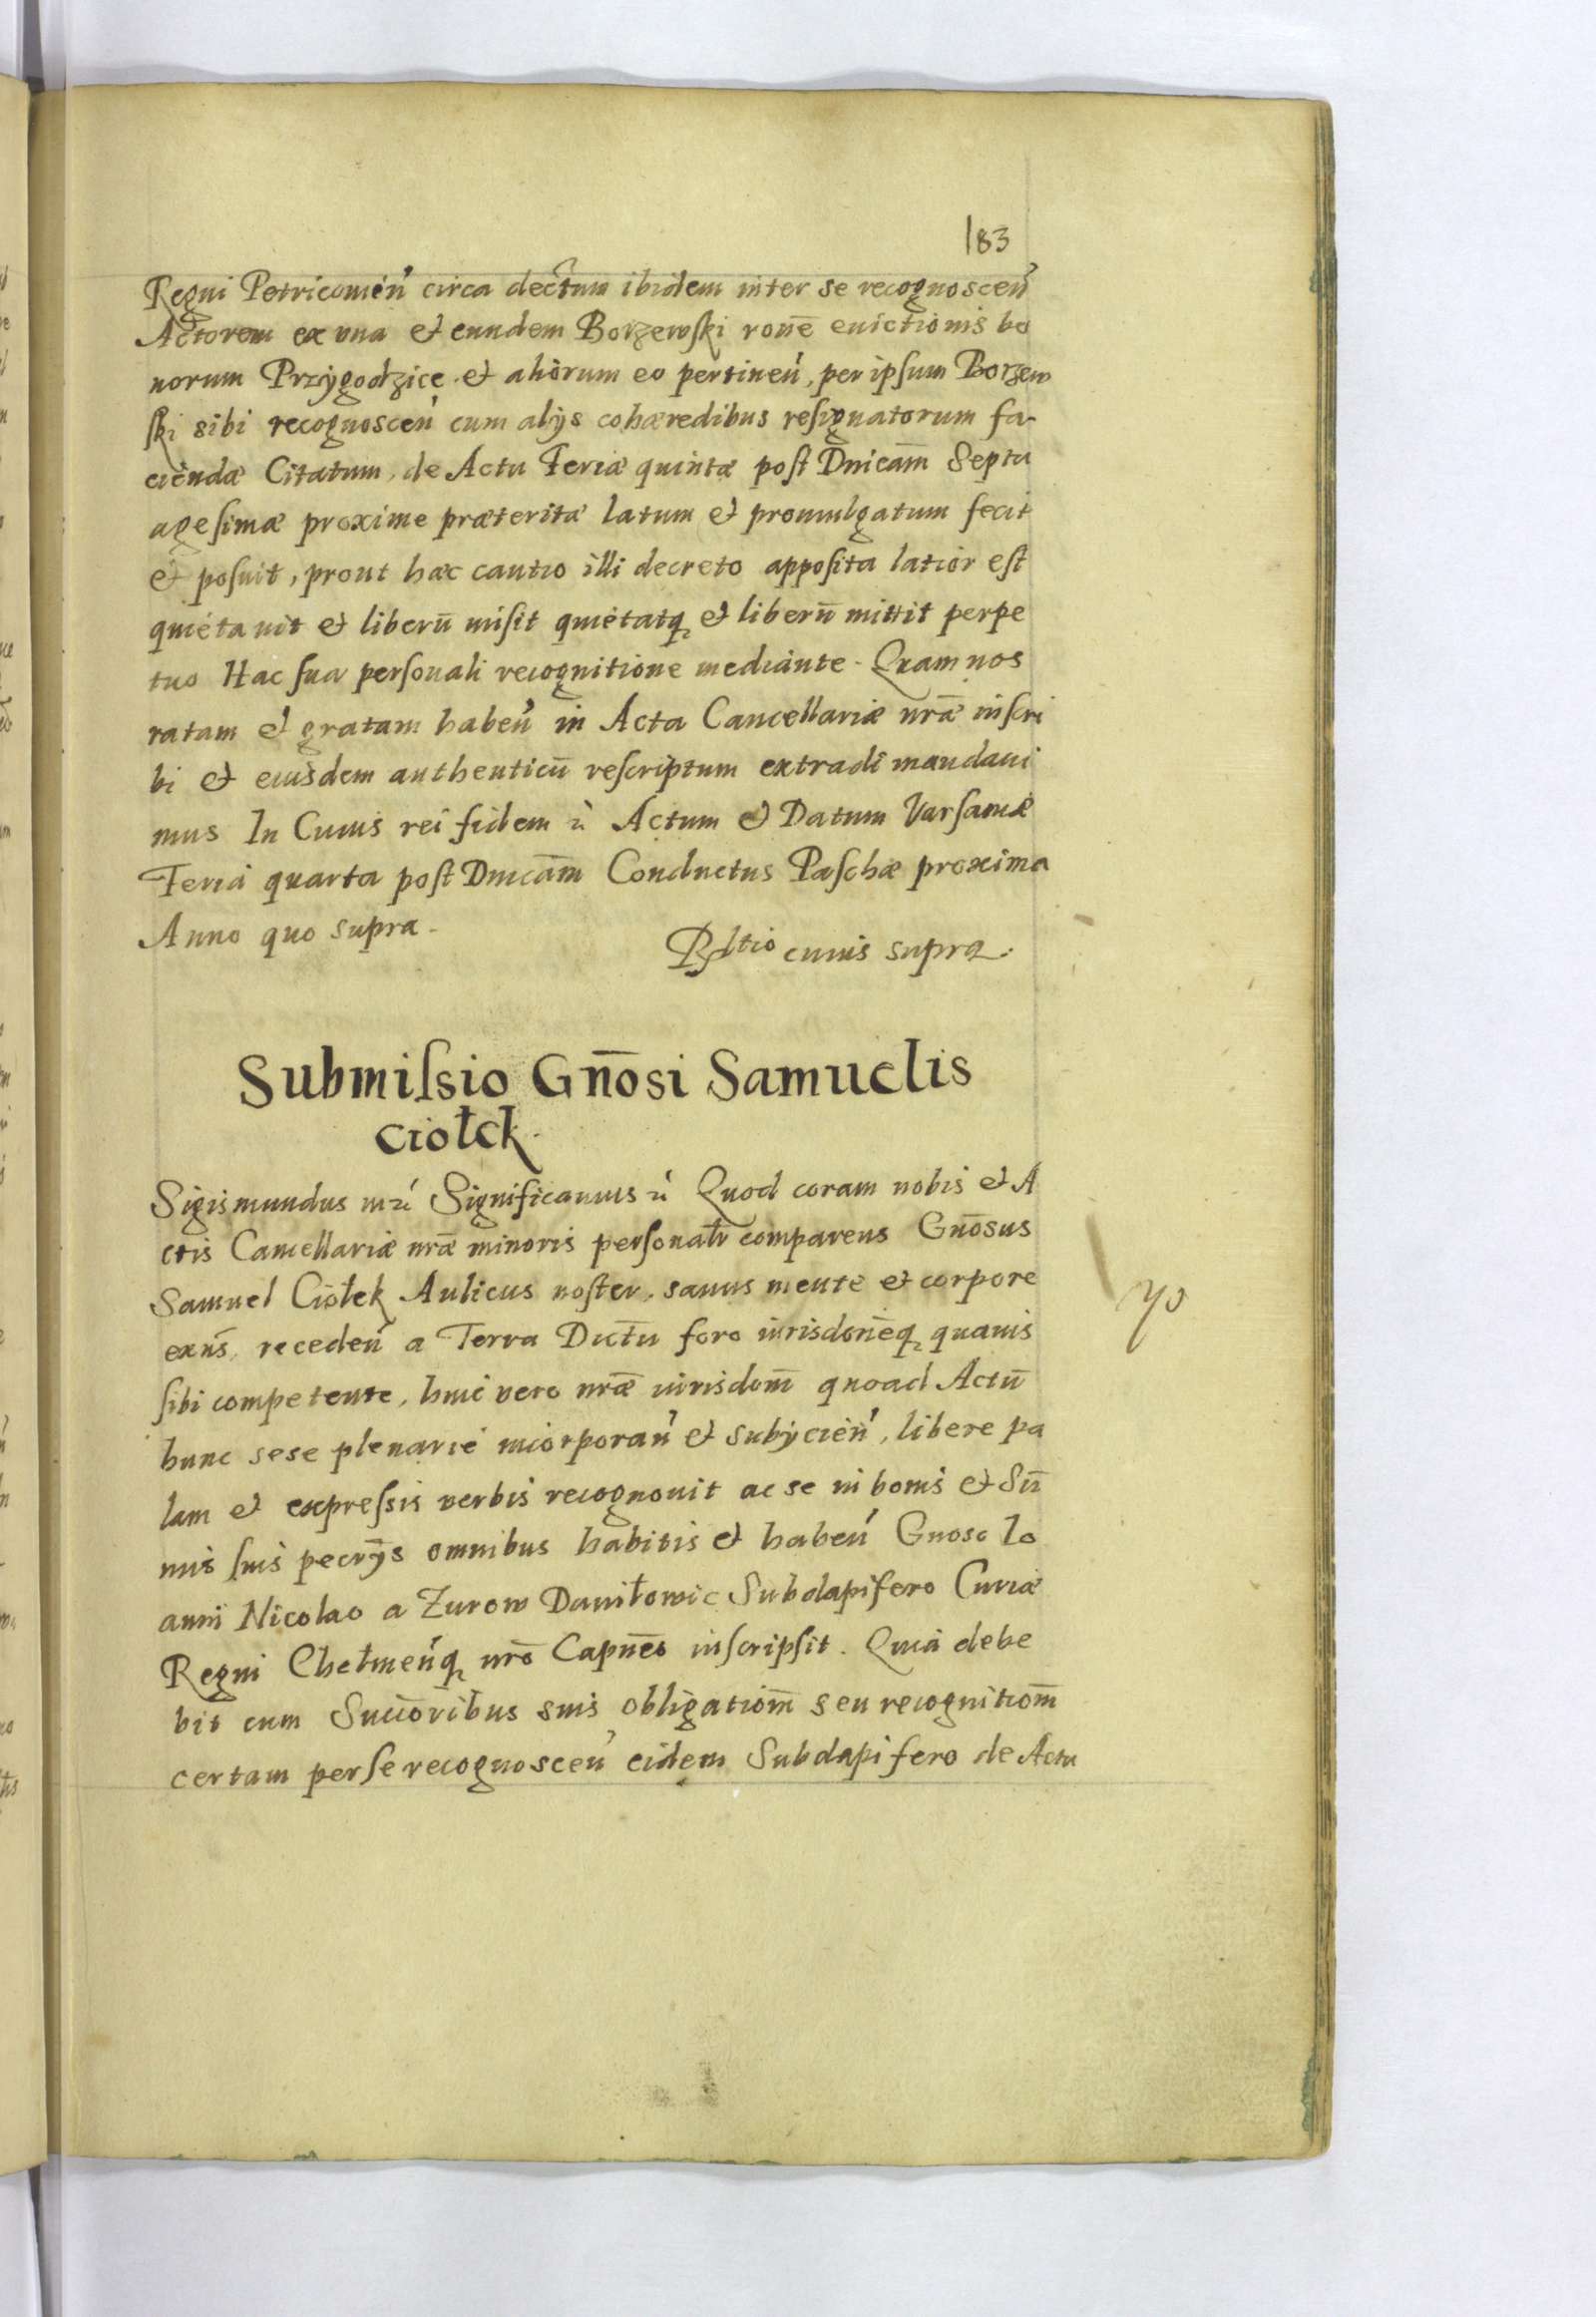 183
Regni Petricouień circa dectum ibidem inter se recognosceń
Actorem ex vna et eundem Borzewski rone euictionis bo
norum Przygodzice et aliorum eo pertineń, per ipsum Borzew
ski sibi recognosceń cum alijs cohæredibus resignatorum fa-
ciendæ Citatum, de Actu Feriæ quintæ post Dnicam Septu
agesimæ proxime præteritæ latum et promulgatum fecit
et posuit, prout hæc cautio illi decreto apposita latior est
quietauit et liberū misit quietatq et liberū mittit perpe
tuo Hac sua personali recognitione mediante. Quam nos
ratam et gratam habeń in Acta Cancellariæ nræ inscri
bi et eiusdem authenticū rescriptum extradi mandaui
mus In Cuius rei fidem rc Actum et Datum Varsauiæ
Feria quarta post Dnicam Conductus Paschæ proxima
Anno quo supra.
Rltio cuius supra.
Submissio Gnosi Samuelis
Ciołek.
Sigismundus mrc Significamus rc Quod coram nobis et A
ctis Cancellariæ nræ minoris personalr comparens Gnosus
Samuel Ciołek Aulicus noster, sanus mente et corpore
exns, recedeń a Terra Dictu foro iurisdoneq quauis
sibi competente, huic vero nræ iurisdom quoad Actū
hunc sese plenarie incorporań et subijcień, libere pa
lam et expressis verbis recognouit ac se in bonis et Sū
mis suis pecrijs omnibus habitis et habeń Gnoso Io
anni Nicolao a Zurow Daniłowic Subdapifero Curiæ
Regni Chełmeńq nro Capneo inscripsit. Quia debe
bit cum Succoribus suis obligatiom seu recognitiom
certam per se recognosceń eidem Subdapifero de Actu